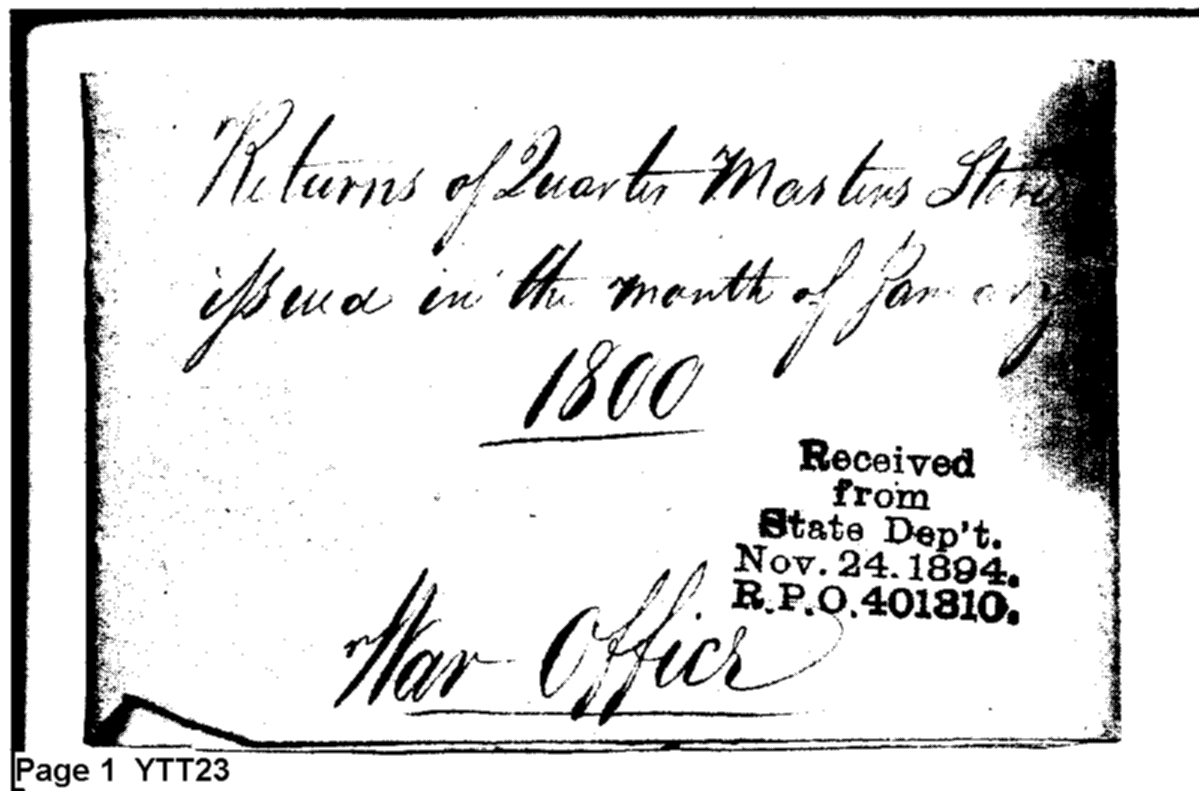 Returns of Quarter Masters Stores
issued in the month of January
1800
Received
from
State Dep't.
Nov. 24. 1894.
R.P.O. 401810.
War Office
Page 1 YTT23